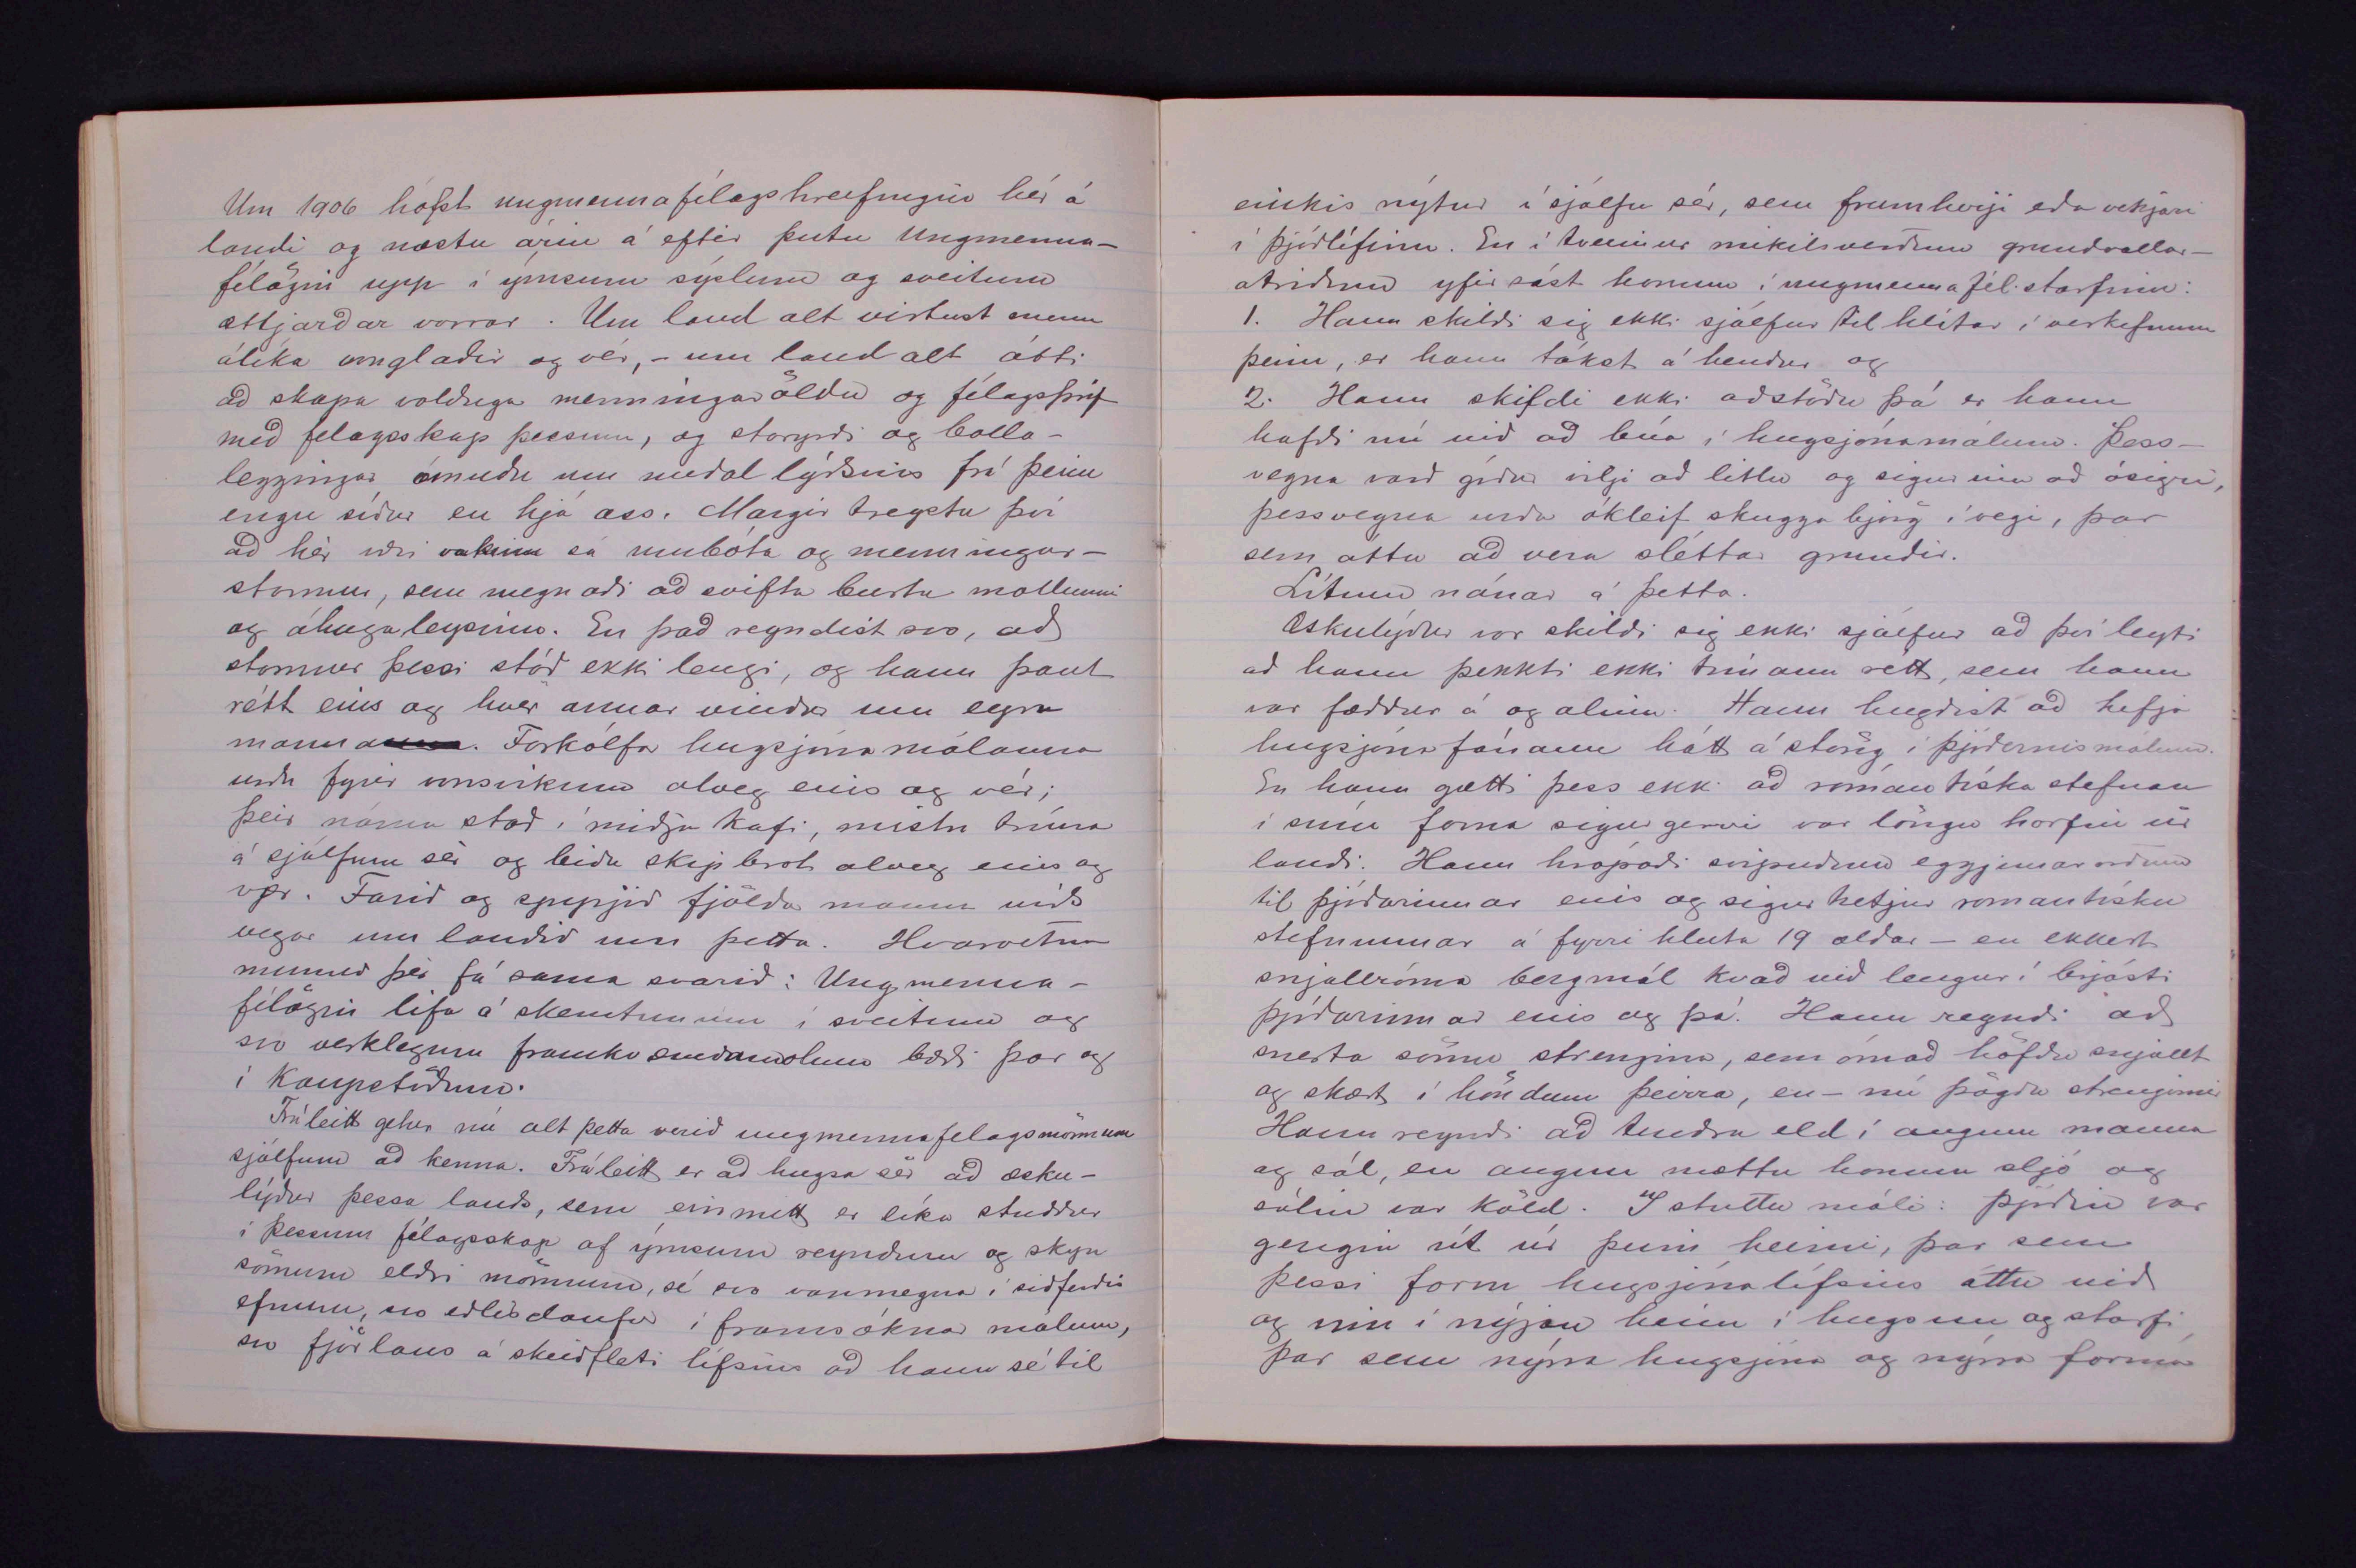 Um 1906 hófst ungmennafélagshreifingin hér á
landi og næstu árin á eftir þutu Ungmenna-
félögin upp í ýmsum sýslum og sveitum
ættjarðar vorrar. Um land alt virtust menn
álíka vonglaðir og vér, - um land alt átti
að skapa volduga menningaröldu og félagsþrif
með felagsskap þessum, og stóryrði og bolla-
leggingar ómuðu um meðal lýðsins frá þeim
engu síður en hjá oss. Margir treystu því
að hér væri vakinn sá umbóta og menningar-
stormur, sem megnaði að svifta burtu mollunni
og áhugaleysinu. En það reyndist svo, að
stormur þessi stóð ekki lengi, og hann þaut
rétt eins og hver annar vindur um eyru
manna. Forkólfa hugsjónamálanna
urðu fyrir vonsvikum alveg eins og vér;
þeir námu stað í miðju kafi, mistu trúna
á sjálfum sér og biðu skipbrot alveg eins og
vér. Farið og spyrjið fjölda manns víðs
vegar um landið um þetta. Hvarvetna
munuð þér fá sama svarið: Ungmenna-
félögin lifa á skemtunum í sveitum og
svo verklegum framkvæmdamolum bæði þar og
í kaupstöðum.
Fráleitt getur nú alt þetta verið ungmennafelagsmönnum
sjálfum að kenna. Fráleitt er að hugsa sér að æsku-
lýður þessa lands, sem einmitt er líka studdur
í þessum félagsskap af ýmsum reyndum og skyn
sömum eldri mönnum, sé svo vanmegna í siðferðis
efnum, svo eðlisdaufur í framsóknar málum,
svo fjörlaus á skeiðfleti lífsins að hann sé til
einkis nýtur í sjálfu sér, sem frumherji eða vekjari
í þjóðlífinu. En í tveimur mikilsverðum grundvallar-
atriðum yfirsást honum í ungmennafél. starfinu:
1. Hann skildi sig ekki sjálfur til hlítar í verkefnum
þeim, er hann tókst á hendur og
2. Hann skildi ekki aðstöðu þá er hann
hafði nú við að búa í hugsjónamálum. Þess-
vegna varð góður vilji að litlu og sigurinn að ósigri,
þessvegna urðu ókleif skuggabjörg í vegi, þar
sem áttu að vera sléttar grundir.
Lítum nánar á þetta.
Æskulýður vor skildi sig ekki sjálfur að því leyti
að hann þekkti ekki tímann rétt, sem hann
var fæddur á og alinn. Hann hugðist að hefja
hugsjónafánann hátt á stöng í þjóðernismálum.
En hann gætti þess ekki að rómantíska stefnan
í sínu forna sigurgervi var löngu horfin úr
landi. Hann hrópaði svipuðum eggjunarorðum
til þjóðarinnar eins og sigurhetjur romantísku
stefnunnar á fyrri hluta 19 aldar - en ekkert
snjallróma bergmál kvað við lengur í brjósti
þjóðarinnar eins og þá. Hann reyndi að
snerta sömu strengina, sem ómað höfðu snjallt
og skært í höndum þeirra, en - nú þögðu strengirnir
Hann reyndi að tendra eld í augum manna
og sál, en augun mættu honum sljó og
sálin var köld. Í stuttu máli: Þjóðin var
gengin út úr þeim heimi, þar sem
þessi form hugsjónalífsins áttu við
og inn í nýjan heim í hugsun og starfi
þar sem nýrra hugsjóna og nýrra forma